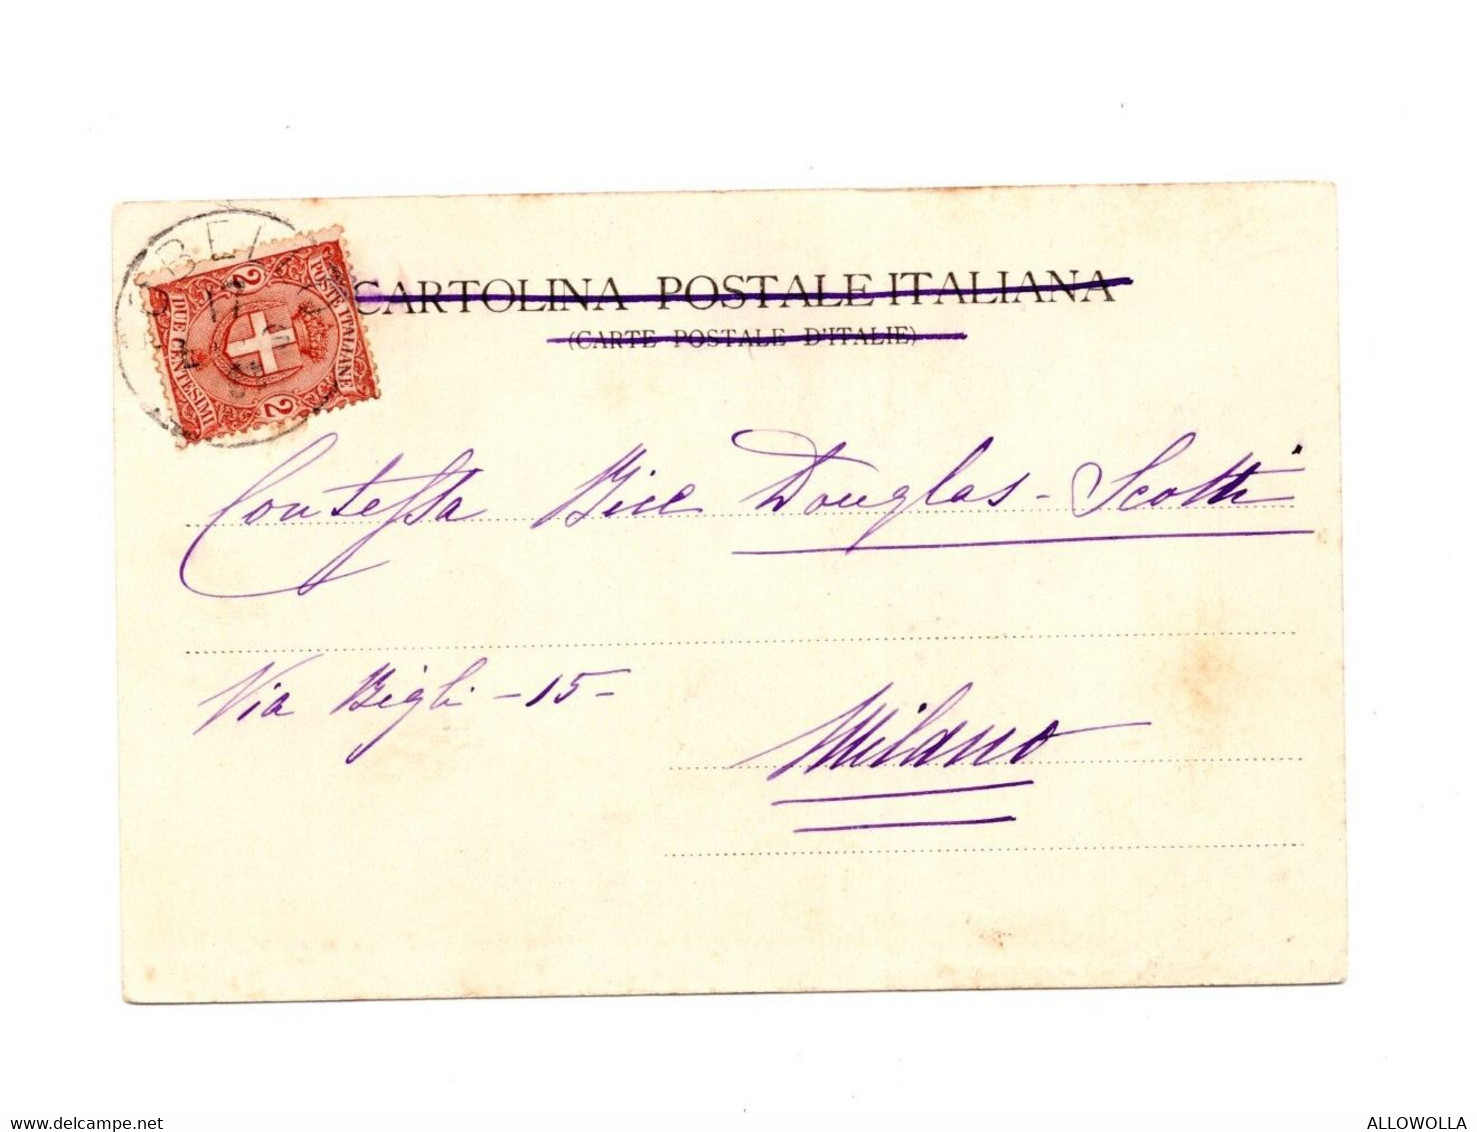 CARTOLINA POSTALE ITALIANA
(CARTE POSTALE D'ITALIE)
POSTE ITALIANE
2
2
DUE CENTESIMI
Contessa Bice Douglas-Scotti
Via Bigli - 15 -
Milano
ALLOWOLLA